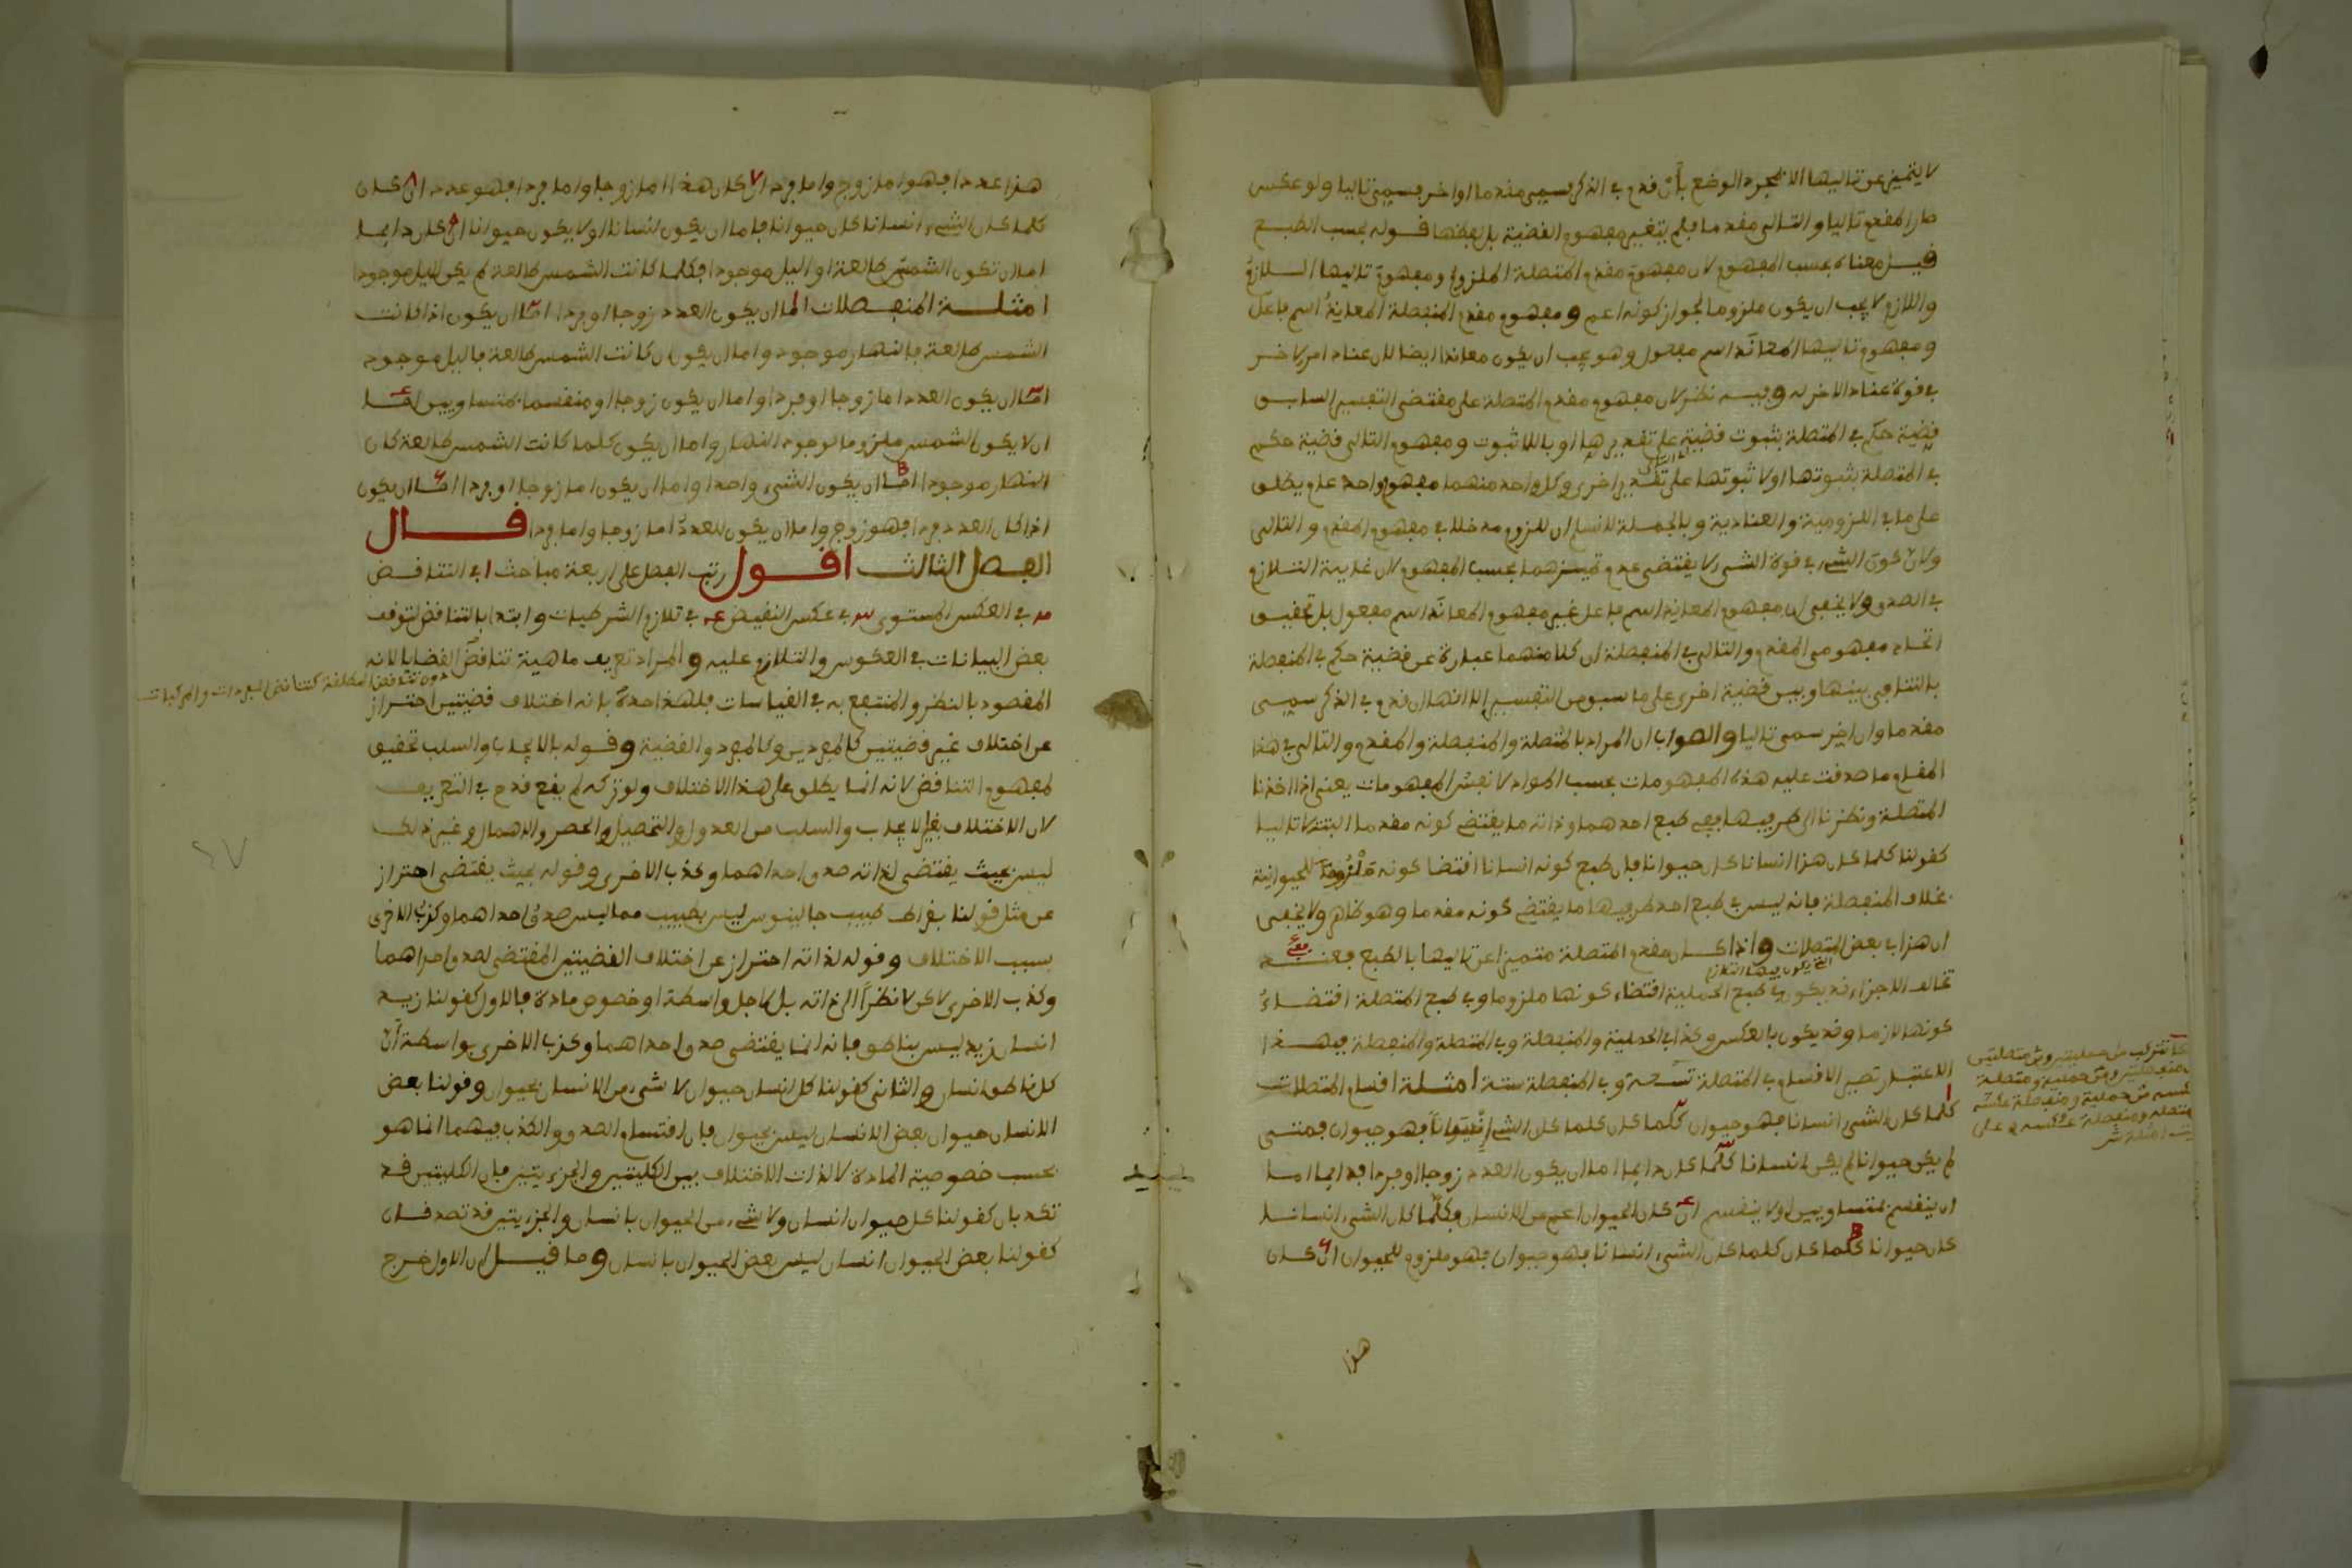 لا يتميز عن تاليها الا بمجرد الوضع بأن قدم في الذكر يسمى مقدما او اخر يسمى تاليا ولو عكس
صار المقدم تاليا والتالي مقدما فلم يتغير مفهوم القضية بل بعضها قوله بحسب الطبع
قيل معناه بحسب المفهوم لان مفهوم مقدم المتصلة الملزوم ومفهوم تاليها اللازم
واللازم لا يجب ان يكون ملزوما لجواز كونه اعم ومفهوم مقدم المنفصلة المعاند اسم فاعل
ومفهوم تاليها المعاند اسم مفعول وهو يجب ان يكون معاندا ايضا لان عناد امر لاخر
في قوة عناد الاخر له وفيه نظر لان مفهوم مقدم المتصلة على مقتضى التفسير السابق
قضية حكم في المتصلة بثبوت قضية على تقديرها او باللا ثبوت ومفهوم التالي قضية حكم
في المتصلة بثبوتها او لا ثبوتها على تقدير اخرى وكل واحد منهما مفهوم واحد علم يطلق
على ما في اللزومية والعنادية وبالجملة لا نسلم ان للزوم مدخلا في مفهوم المقدم والتالي
ولان كون الشيء في قوة الشيء لا يقتضي عدم تميزهما بحسب المفهوم لان غايته التلازم
في الصدق ولا يخفى ان مفهوم المعاند اسم فاعل غير مفهوم المعاند اسم مفعول بل تحقيق
اتحاد مفهومي المقدم والتالي في المنفصلة ان كلا منهما عبارة عن قضية حكم في المنفصلة
بالتنافي بينها وبين قضية اخرى على ما سبق من التفسير الا انها ان قدم في الذكر سمي
مقدما وان اخر سمي تاليا والصواب ان المراد بالمتصلة والمنفصلة والمقدم والتالي في هذا
المقام ما صدقت عليه هذه المفهومات بحسب المواد لا نفس المفهومات يعني اذا اخذنا
المتصلة ونظرنا الى طرفيها ففي طبع احدهما وذاته ما يقتضي كونه مقدما البتة لا تاليا
كقولنا كلما كان هذا انسانا كان حيوانا فان طبع كونه انسانا اقتضا كونه ملزوما للحيوانية
بخلاف المنفصلة فانه ليس في طبع احد طرفيها ما يقتضي كونه مقدما وهو ظاهر ولا يخفى
ان هذا في بعض المتصلات واذا كان مقدم المتصلة متميزا عن تاليها بالطبع فعند
التي يكون فيها التلازم
تخالف الاجزاء قد يكون في طبع الحملية اقتضاء كونها ملزوما وفي طبع المتصلة اقتضاء
كونها لازما وقد يكون بالعكس وكذا في الحملية والمنفصلة وفي المتصلة والمنفصلة فبهذا
الاعتبار تصير الاقسام في المتصلة تسعة وفي المنفصلة ستة امثلة اقسام المتصلات
كلما كان الشيء انسانا فهو حيوان كلما كان كلما كان الشيء انسانا فهو حيوان فمتى
لم يكن حيوانا لم يكن انسانا كلما كان دايما اما ان يكون العدد زوجا او فردا فدايما اما
ان ينقسم بمتساويين او لا ينقسم ان كان الحيوان اعم من الانسان فكلما كان الشيء انسانا
كان حيوانا كلما كان كلما كان الشيء انسانا فهو حيوان فهو ملزوم للحيوان ان كان
هذا
هذا عددا فهو اما زوج واما فرد ان كان هذا اما زوجا واما فردا فهو عدد ان كان
كلما كان الشيء انسانا كان حيوانا فاما ان يكون انسانا او لا يكون حيوانا ان كان دايما
اما ان تكون الشمس طالعة او الليل موجودا فكلما كانت الشمس طالعة لم يكن الليل موجودا
امثلة المنفصلات اما ان يكون العدد زوجا او فردا اما ان يكون اذا كانت
الشمس طالعة فالنهار موجود واما ان يكون ان كانت الشمس طالعة فالليل موجود
اما ان يكون العدد اما زوجا او فردا واما ان يكون زوجا او منقسما بمتساويين اما
ان لا يكون الشمس ملزوما لوجود النهار واما ان يكون كلما كانت الشمس طالعة كان
النهار موجودا اما ان يكون الشيء واحدا واما ان يكون اما زوجا او فردا اما ان يكون
اذا كان العدد فردا فهو زوج واما ان يكون للعدد اما زوجا واما فردا قال
الفصل الثالث اقول رتب الفصل على اربعة مباحث ا في التناقض
في العكس المستوي في عكس النقيض في تلازم الشرطيات وابتدا بالتناقض لتوقف
بعض البيانات في العكوس والتلازم عليه والمراد تعريف ماهية تناقض القضايا لانه
دون تناقض المطلقة كتناقض المفردات والمركبات
المقصود بالنظر والمنتفع به في القياسات فلهذا حده بانه اختلاف قضيتين احتراز
عن اختلاف غير قضيتين كالمفردين وكالمفرد والقضية وقوله بالايجاب والسلب تحقيق
لمفهوم التناقض لانه انما يطلق على هذا الاختلاف ولو تركه لم يقع قدح في التعريف
لان الاختلاف بغير الايجاب والسلب من العدول والتحصيل والحصر والاهمال وغير ذلك
ليس بحيث يقتضي لذاته صدق احداهما وكذب الاخرى وقوله بحيث يقتضي احتراز
عن مثل قولنا بقراط طبيب جالينوس ليس بطبيب مما ليس صدق احداهما وكذب الاخرى
بسبب الاختلاف وقوله لذاته احتراز عن اختلاف القضيتين المقتضي لصدق احداهما
وكذب الاخرى لاكن لا نظرا الى ذاته بل لاجل واسطة او خصوص مادة فالاول كقولنا زيد
انسان زيد ليس بناطق فانه انما يقتضي صدق احداهما وكذب الاخرى بواسطة أن
كل ناطق انسان والثاني كقولنا كل انسان حيوان لا شيء من الانسان بحيوان وقولنا بعض
الانسان حيوان بعض الانسان ليس بحيوان فان اقتسام الصدق والكذب فيهما انما هو
بحسب خصوصية المادة لا لذات الاختلاف بين الكليتين والجزءيتين فان الكليتين قد
تكذبان كقولنا كل حيوان انسان ولا شيء من الحيوان بانسان والجزءيتين قد تصدقان
كقولنا بعض الحيوان انسان ليس بعض الحيوان بانسان وما قيل ان الاول خرج